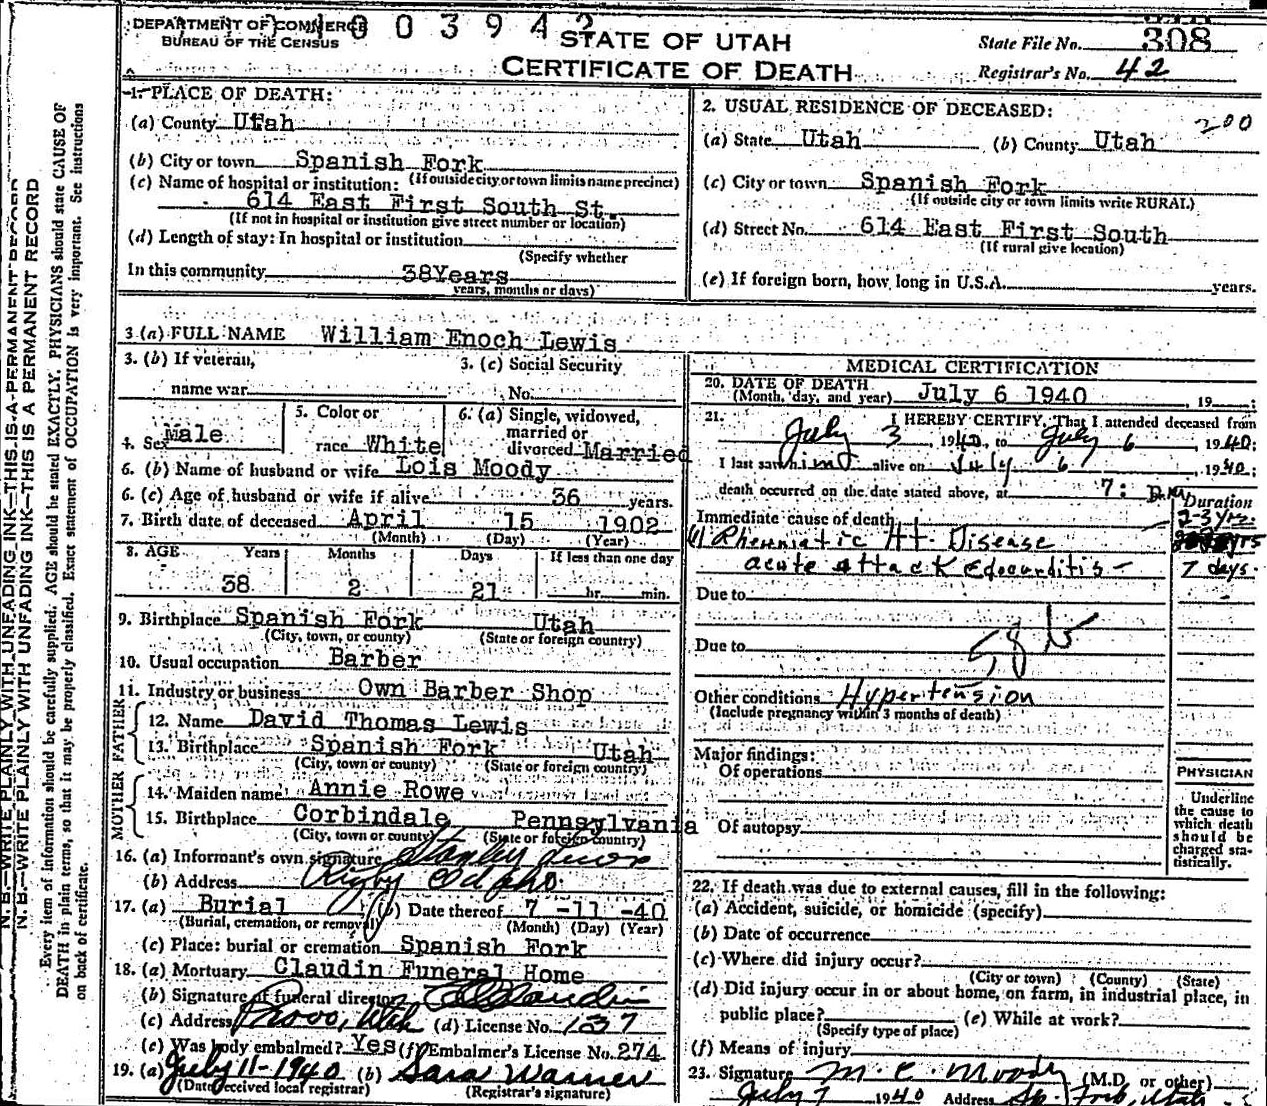 DEPARTMENT OF COMMERCE
BUREAU OF THE CENSUS
003942
STATE OF UTAH
CERTIFICATE OF DEATH
State File No. 308
Registrar's No. 42
1. PLACE OF DEATH:
(a) County Utah
(b) City or town Spanish Fork
(If outside city or town limits name precinct)
(c) Name of hospital or institution:
614 East First South St.
(If not in hospital or institution give street number or location)
(d) Length of stay: In hospital or institution
(Specify whether
In this community 38Years
years, months or days)
2. USUAL RESIDENCE OF DECEASED:
200
(a) State Utah (b) County Utah
(c) City or town Spanish Fork
(If outside city or town limits write RURAL)
(d) Street No. 614 East First South
(If rural give location)
(e) If foreign born, how long in U.S.A. years.
3 (a) FULL NAME William Enoch Lewis
3. (b) If veteran,
name war
3. (c) Social Security
No.
4. Sex Male
5. Color or
race White
6. (a) Single, widowed,
married or
divorced Married
6. (b) Name of husband or wife Lois Moody
6. (c) Age of husband or wife if alive 36 years.
7. Birth date of deceased April 15 1902
(Month) (Day) (Year)
8. AGE Years Months Days If less than one day
38 2 21 hr. min.
9. Birthplace Spanish Fork Utah
(City, town, or county) (State or foreign country)
10. Usual occupation Barber
11. Industry or business Own Barber Shop
FATHER
12. Name David Thomas Lewis
13. Birthplace Spanish Fork Utah
(City, town, or county) (State or foreign country)
MOTHER
14. Maiden name Annie Rowe
15. Birthplace Corbindale Pennsylvania
(City, town or county) (State or foreign country)
16. (a) Informant's own signature Stanley Lewis
(b) Address Rigby Idaho
17. (a) Burial (b) Date thereof 7 -11 -40
(Burial, cremation, or removal) (Month) (Day) (Year)
(c) Place: burial or cremation Spanish Fork
18. (a) Mortuary Claudin Funeral Home
(b) Signature of funeral director Claudin
(c) Address Provo, Utah (d) License No. 137
(e) Was body embalmed? Yes (f) Embalmer's License No. 274
19. (a) July 11-1940 (b) Sara Warner
(Date received local registrar) (Registrar's signature)
MEDICAL CERTIFICATION
20. DATE OF DEATH
(Month, day, and year) July 6 1940 , 19 ;
21. I HEREBY CERTIFY, That I attended deceased from
July 3, 1940, to July 6, 1940;
I last saw him alive on July 6, 1940;
death occurred on the date stated above, at 7: P.M.
Duration
Immediate cause of death 2-3 yrs.
(1) Rheumatic Ht. Disease yrs
acute attack Edocarditis - 7 days.
Due to
Due to
Other conditions Hypertension
(Include pregnancy within 3 months of death)
Major findings:
Of operations
Of autopsy
PHYSICIAN
Underline
the cause to
which death
should be
charged sta-
tistically.
22. If death was due to external causes, fill in the following:
(a) Accident, suicide, or homicide (specify)
(b) Date of occurrence
(c) Where did injury occur?
(City or town) (County) (State)
(d) Did injury occur in or about home, on farm, in industrial place, in
public place? (e) While at work?
(Specify type of place)
(f) Means of injury
23. Signature M. C. Moody (M.D. or other)
July 7 1940 Address Sp. Fork, Utah
N. B.—WRITE PLAINLY WITH UNFADING INK—THIS IS A PERMANENT RECORD
N. B.—WRITE PLAINLY WITH UNFADING INK—THIS IS A PERMANENT RECORD
Every item of information should be carefully supplied. AGE should be stated EXACTLY. PHYSICIANS should state CAUSE OF
DEATH in plain terms, so that it may be properly classified. Exact statement of OCCUPATION is very important. See instructions
on back of certificate.